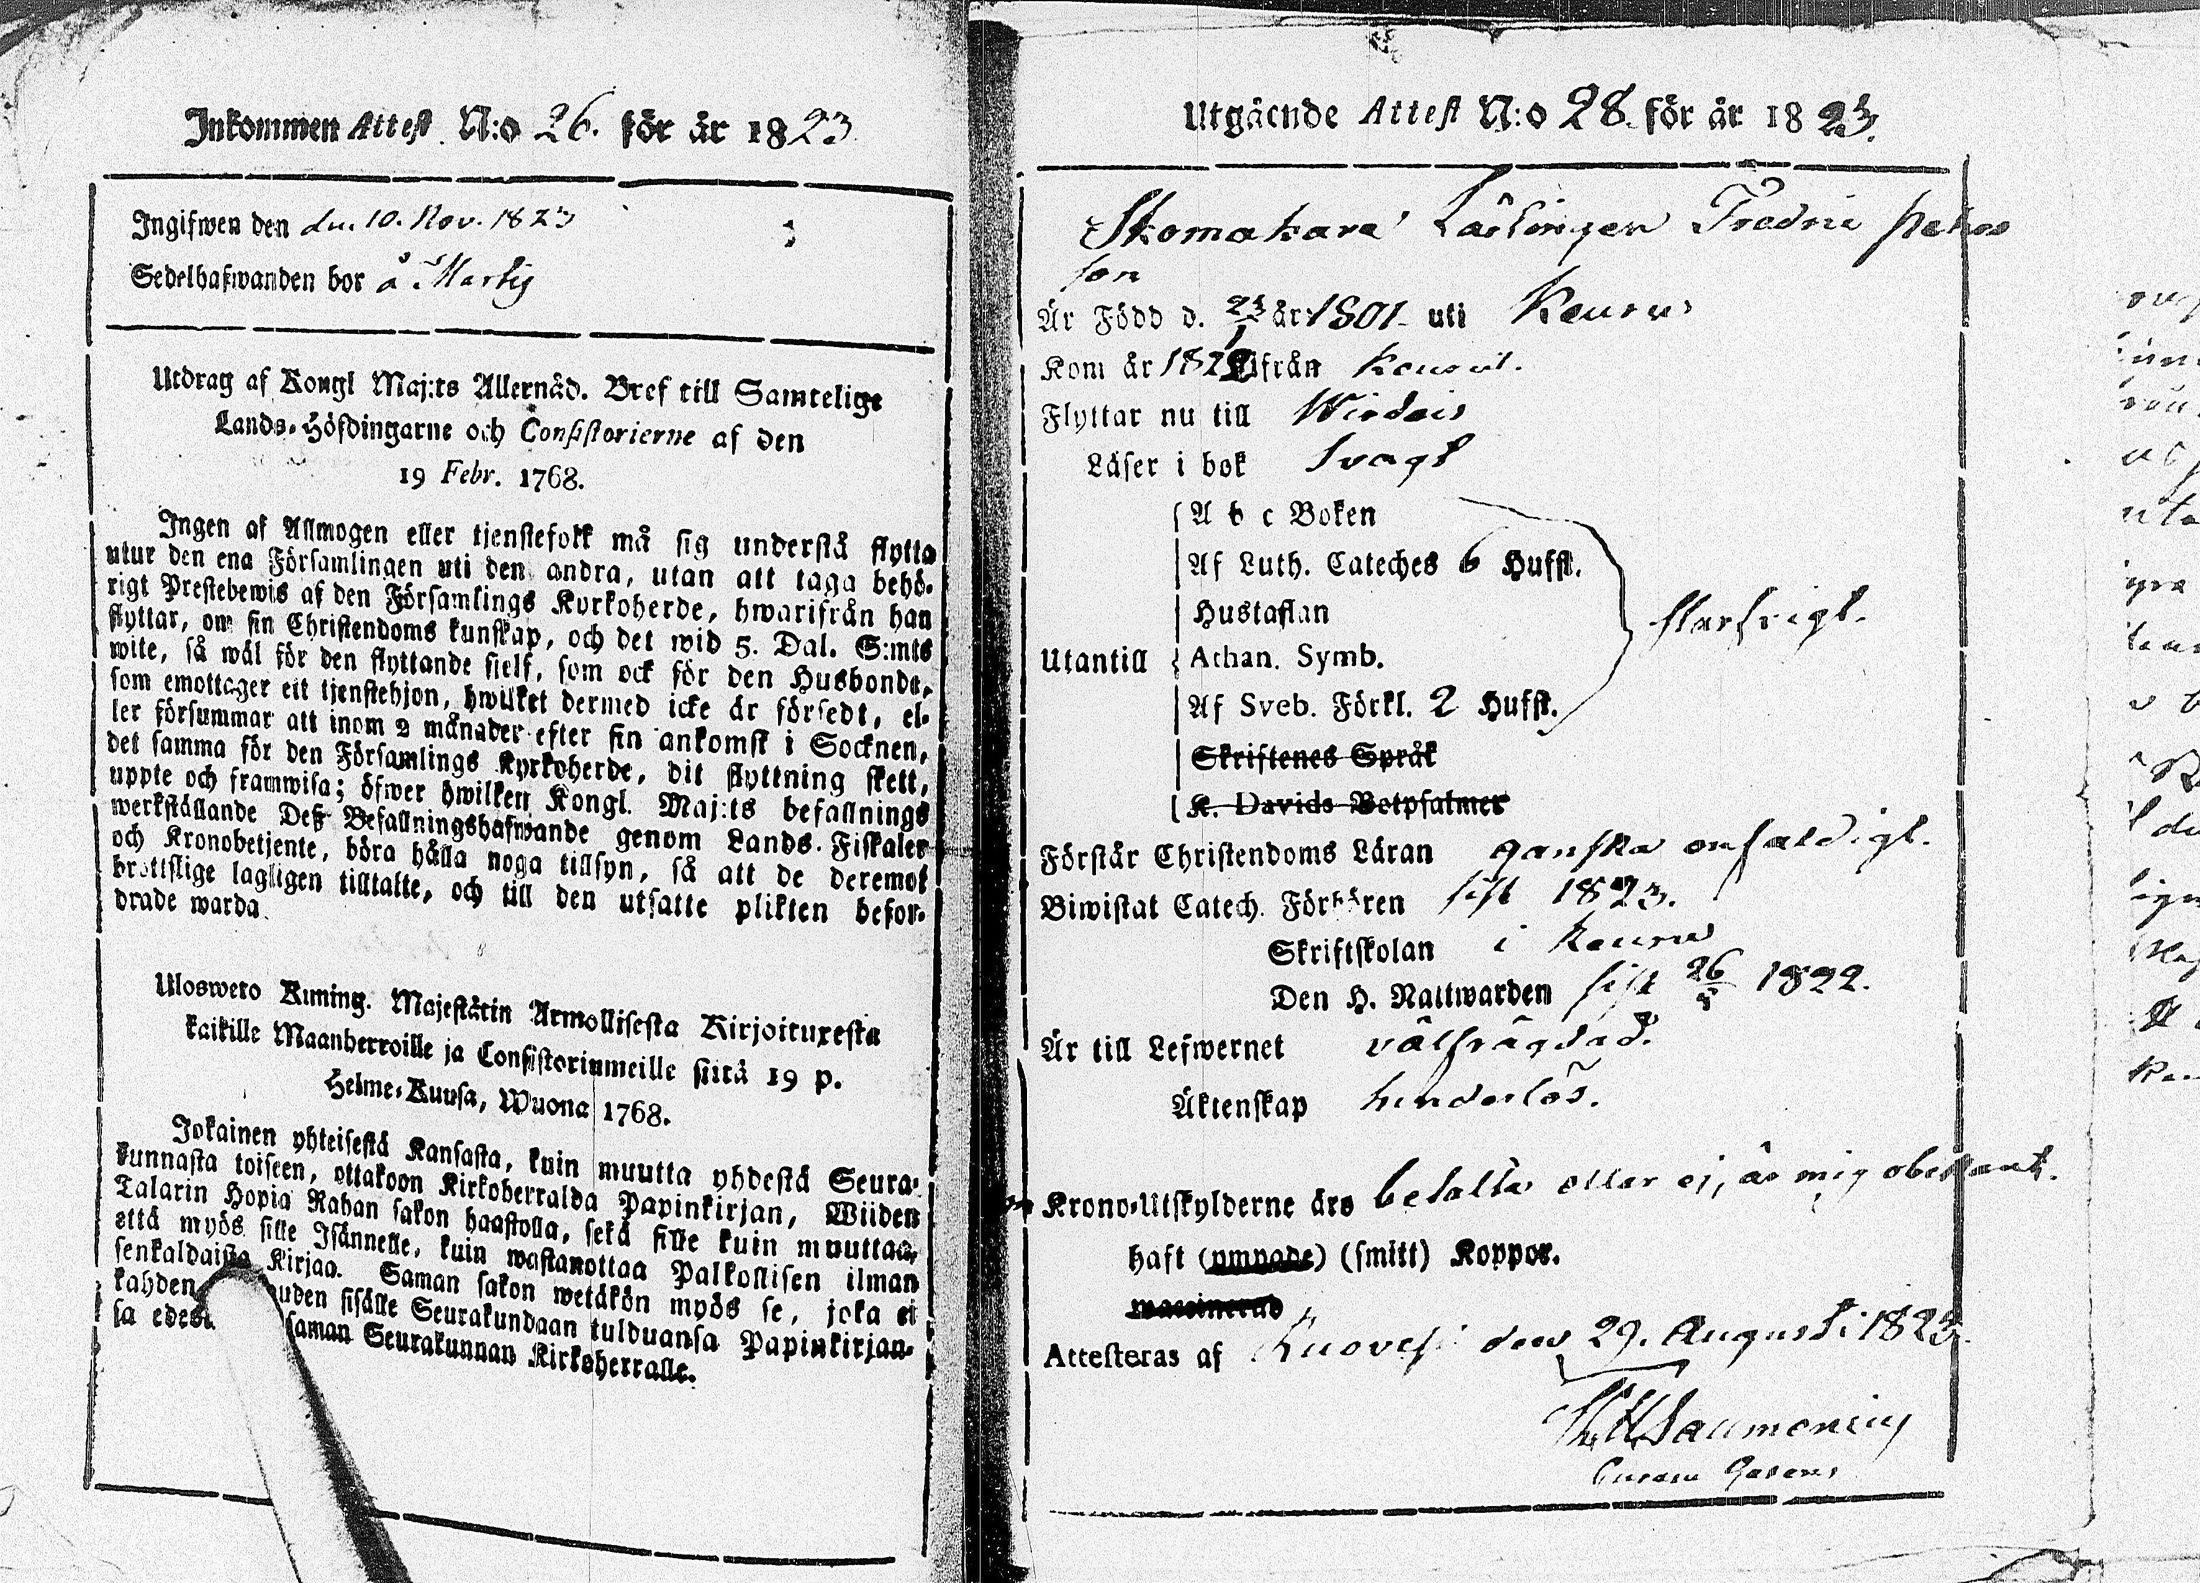 Inkommen Attest N:o 26. för år 1823
Ingifwen den den 10. Nov. 1823
Sedelhafwanden bor å
Utdrag af Kongl Maj:ts Allernåd. Bref till Samtelige
Lands-Höfdingarne och Consistorierne af den
19 Febr. 1768.
Ingen af Allmogen eller tjenstefolk må sig understå flytta
utur den ena Församlingen uti den andra, utan att taga behö-
rigt Prestebewis af den Församlings Kyrkoherde, hwarifrån han
flyttar, om sin Christendoms kunskap, och det wid 5. Dal. S:mts
wite, så wäl för den flyttande sielf, som ock för den Husbonde,
som emottager ett tjenstehjon, hwilket dermed icke är försedt, el-
ler försummar att inom 2 månader efter sin ankomst i Socknen,
det samma för den Församlings Kyrkoherde, dit flyttning skett,
uppte och framwisa; öfwer hwilken Kongl. Maj:ts befallnings
werkställande Deß Befallningshafwande genom Lands-Fiskaler
och Kronobetjente, böra hålla noga tillsyn, så att de deremot
brottslige lagligen tilltalte, och till den utsatte plikten befor-
drade warda.
Uloswero Kuning. Majestätin Armollisesta Kirjoituxesta
kaikille Maanherroille ja Consistoriumeille siitä 19 p.
Helme-Kuusa, Wuona 1768.
Jokainen yhteisestä Kansasta, kuin muutta yhdestä Seura-
kunnasta toiseen, ottakoon Kirkoherralda Papinkirjan, Wiiden
Talarin Hopia Rahan sakon haastolla, sekä sille kuin muuttaa,
että myös sille Isännelle, kuin wastanottaa Palkollisen ilman
senkaldaista Kirjaa. Saman sakon wetäkön myös se, joka ei
kahden uden sisälle Seurakundaan tulduansa Papinkirjan-
sa edes saman Seurakunnan Kirkoherralle.
Utgående Attest N:o 28. för år 1823.
Skomakare Lärlingen Fredric
son
Är Född d. 23/1 år 1801 uti Keuru
Kom år 1822 ifrån
Flyttar nu till Wirdois
Läser i bok svagt
A b c Boken
Af Luth. Cateches 6 Hufst.
Hustaflan
Utantill Athan. Symb.
Af Sveb. Förkl. 2 Hufst.
Skriftenes Språk
K. Davids Botpsalmer
Förstår Christendoms Läran ganska enfaldigt.
Biwistat Catech. Förhören sist 1823.
Skriftskolan i Keuru
Den H. Nattwarden sist 26/5 1822.
Är till Lefwernet välfrägdad.
Äktenskap hinderlös.
Krono-Utskylderne äro betalte eller ej, är mig obekant.
haft (ympade) (smitt) Koppor.
waccinerad
Attesteras af Ruovesi den 29. Augusti 1823.